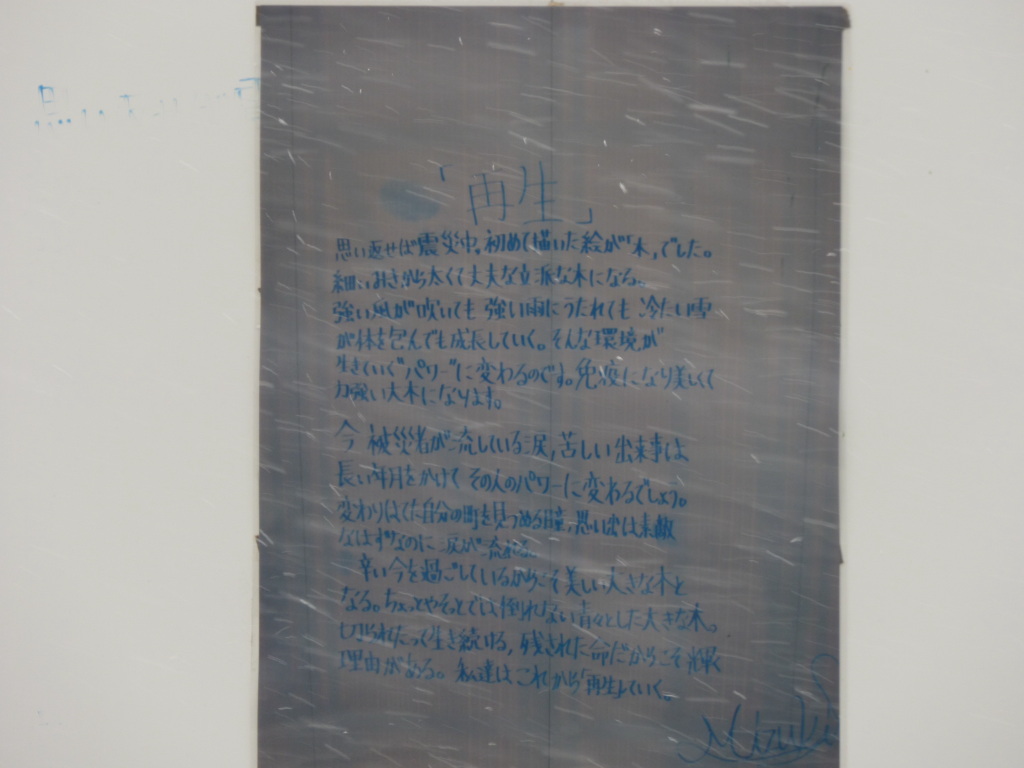 「再生」
思い返せば震災中。初めて描いた絵が「木」でした。
細い から太くて丈夫な立派な木になる。
強い風が吹いても 強い雨にうたれても 冷たい雪
が体を包んでも成長していく。そんな環境が
生きていく"パワー"に変わるのです。免疫になり美しくて
力強い大木になります。
今 被災者が流している涙,苦しい出来事は
長い年月をかけて その人のパワーに変わるでしょう。
変わりはてた自分の町を見つめる瞳,思い出は素敵
なはずなのに 涙が流れる。
辛い今を過ごしているからこそ美しい大きな木と
なる。ちょっとやそっとでは倒れない青々とした大きな木。
切られたって生き続ける, 残された命だからこそ輝く
理由がある。私達は これから「再生」していく。
Mizuki